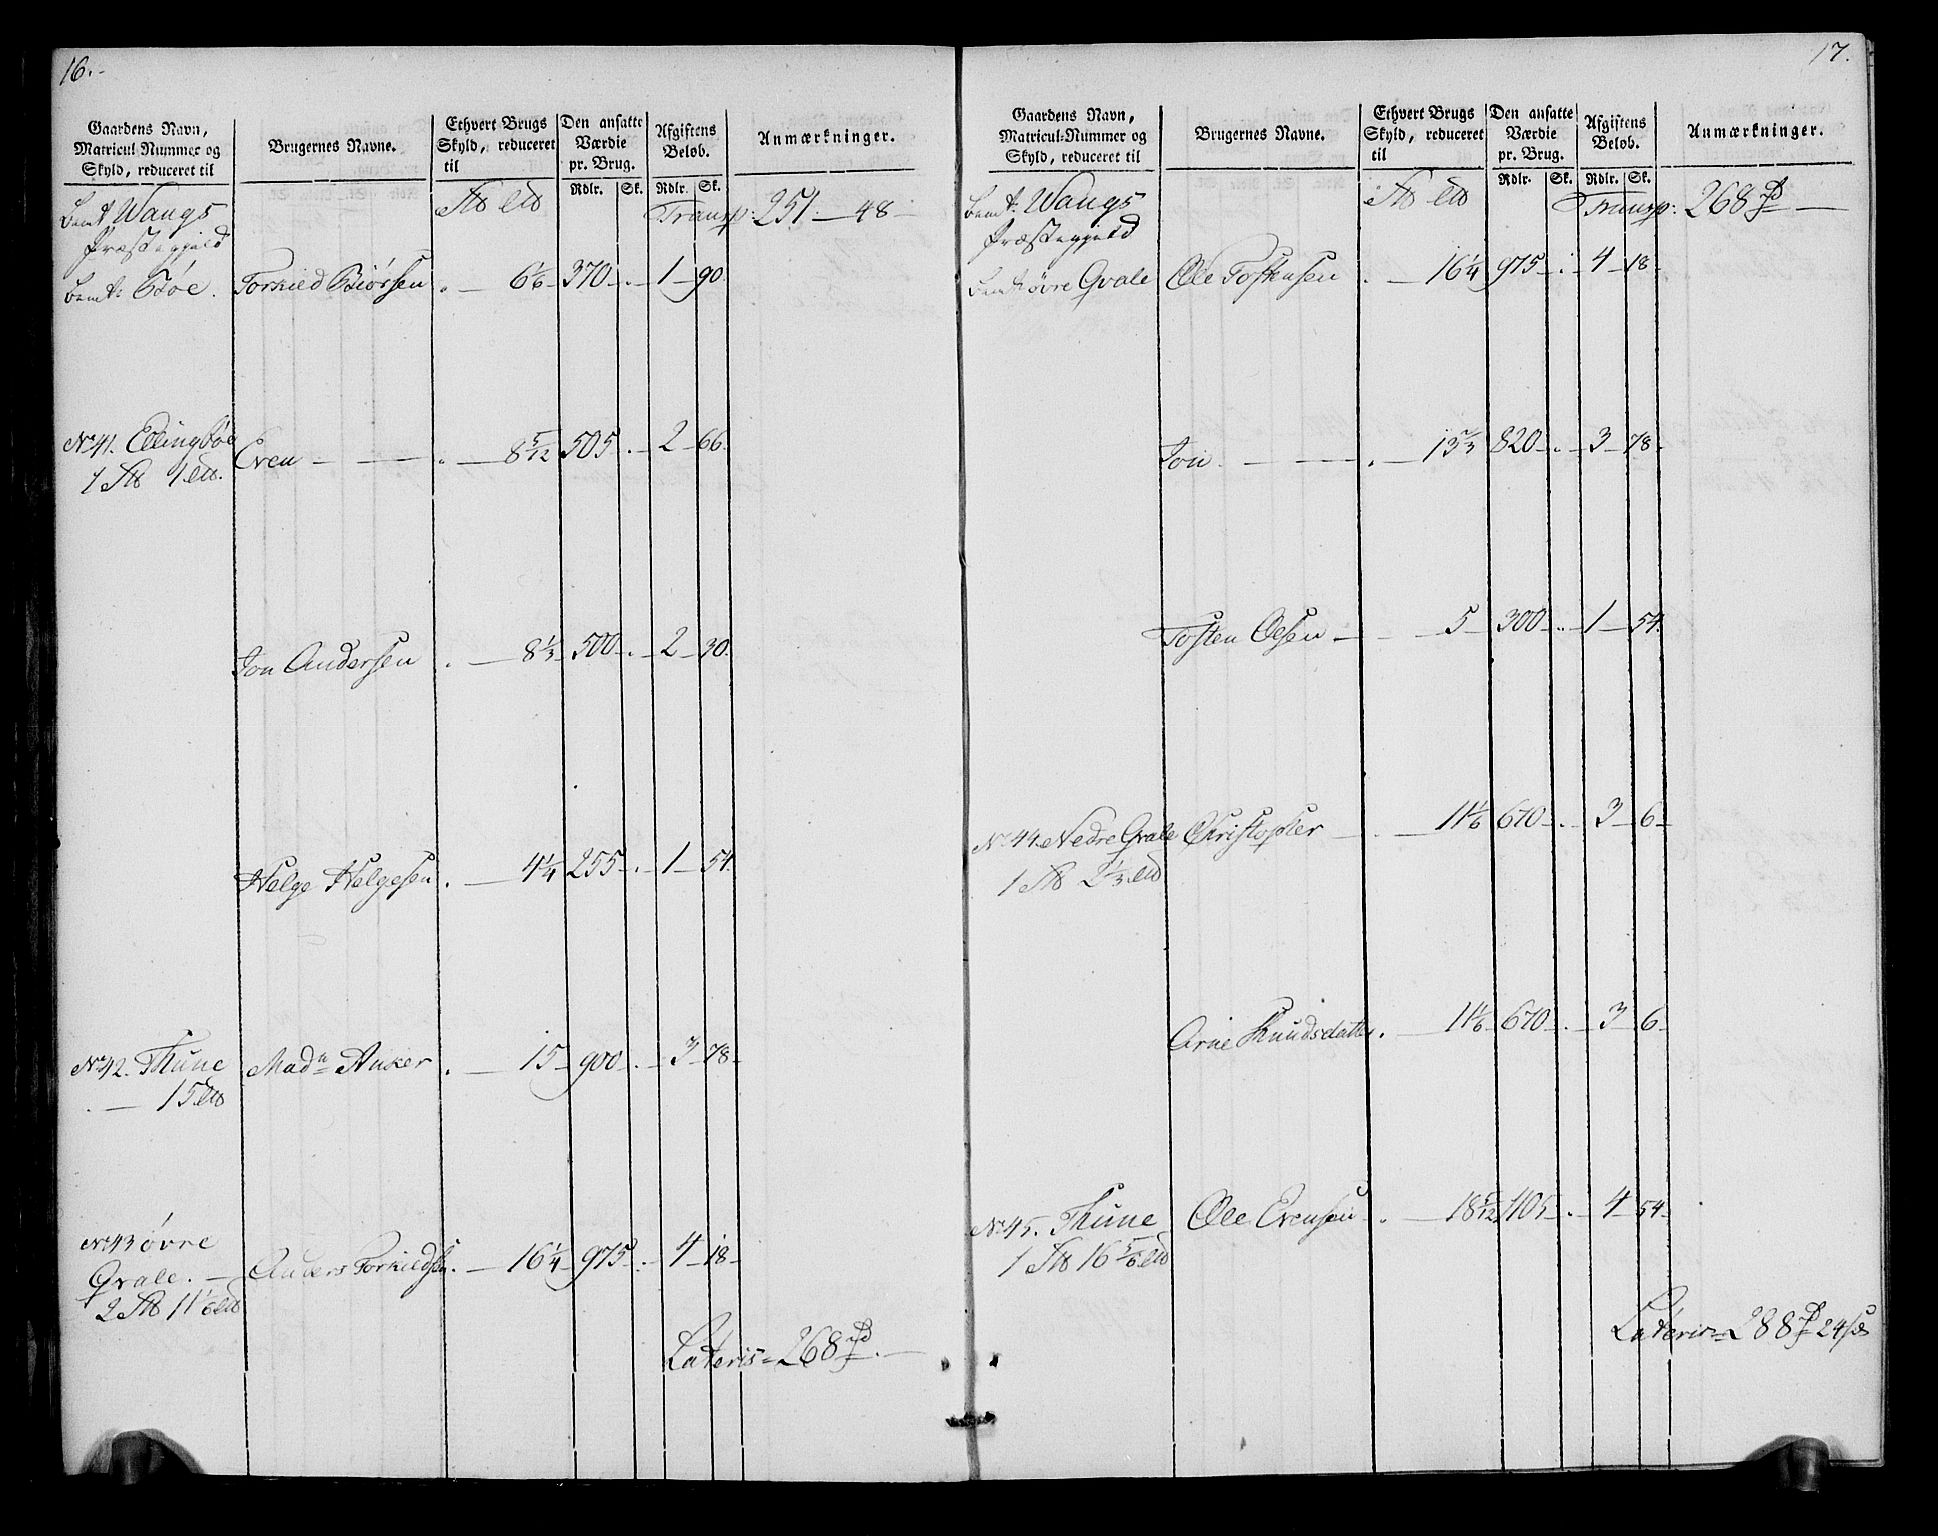 16.
Gaardens Navn, Matricul-Nummer og Skyld, reduceret til | Brugernes Navne. | Ethvert Brugs Skyld, reduceret til | Den ansatte Værdie pr. Brug. Rdlr. Sk. | Afgiftens Beløb. Rdlr. Sk. | Anmærkninger.
Transp: 251 — 48
bemt. Wangs
Præstegjeld
bemt. Bøe. Torkild Biørsen . — 6 1/6 370 — . — 1 — 90.
No 41. Ellingbøe Even — . — 8 5/12 505 . — 2 — 66.
Jon Andersen . — 8 1/3 500 — . — 2 — 30.
Helge Helgesen . — 4 1/4 255 — . — 1 — 54.
No 42. Thune Madn Anker . — 15 — 900 — . — 3 — 78 —
. — 15
No 43 øvre
Qvale. — Anders Torkildsen . — 16 1/4 975 — . — 4 — 18 —
2 11 1/6
Lateris = 268 . —
17.
Gaardens Navn, Matricul-Nummer og Skyld, reduceret til | Brugernes Navne. | Ethvert Brugs Skyld, reduceret til | Den ansatte Værdie pr. Brug. Rdlr. Sk. | Afgiftens Beløb. Rdlr. Sk. | Anmærkninger.
Transp: 268 —
bemt. Wangs
Præstegjeld
bemt. øvre Qvale Ole Tostensen . — 16 1/4 975 — . — 4 — 18 —
Jon . — . — 13 2/3 820 — . — 3 — 78 —
Tosten Olsen — — 5 — 300 — . — 1 — 54.
No 44. Nedre Qvale Christopher — . — 11 1/6 670 — . — 3 — 6 —
1 2 1/3
Arne Knudsdatter . — 11 1/6 670 — . — 3 — 6 —
No 45. Thune Ole Evensen . — 18 5/12 1105 — . — 4 — 54 —
1 16 5/6
Lateris = 288 24